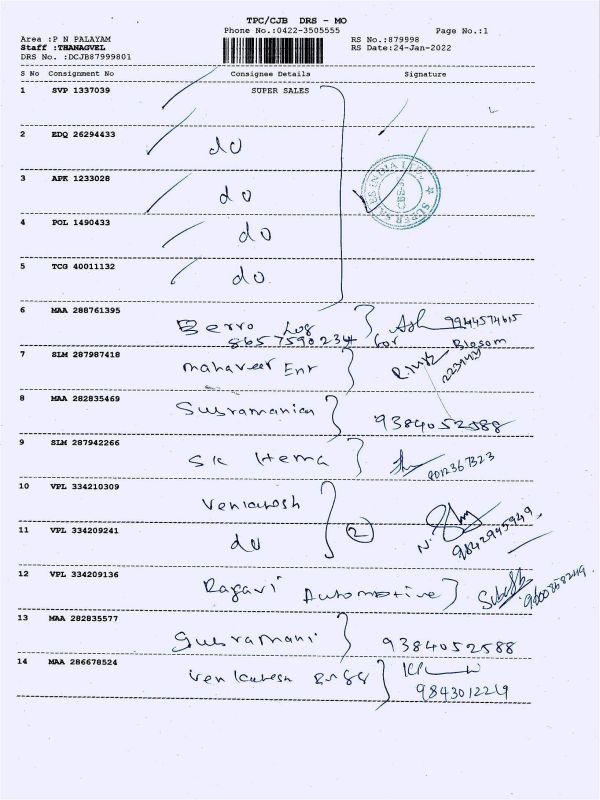 TPC/CJB DRS - MO
Phone No.:0422-3505555 Page No.:1
Area :P N PALAYAM RS No.:879998
Staff :THANAGVEL RS Date:24-Jan-2022
DRS No. :DCJB87999801
S No Consignment No Consignee Details Signature
1 SVP 1337039 SUPER SALES
2 EDQ 26294433 do
3 APK 1233028 do
SUPER SALES INDIA LTD. CBE
4 POL 1490433 do
5 TCG 40011132 do
6 MAA 288761395 Berro Log Ash 9944574615
8657590234 for Blosom
7 SLM 287987418 mahaveer Ent
8 MAA 282835469 Subramanian 9384052588
9 SLM 287942266 SK Hema 8012367323
10 VPL 334210309 Venkatesh
11 VPL 334209241 do 2 N. 9842945949
12 VPL 334209136 Ragavi Automotive
13 MAA 282835577 Subramani 9384052588
14 MAA 286678524 Venkatesh 9843012219